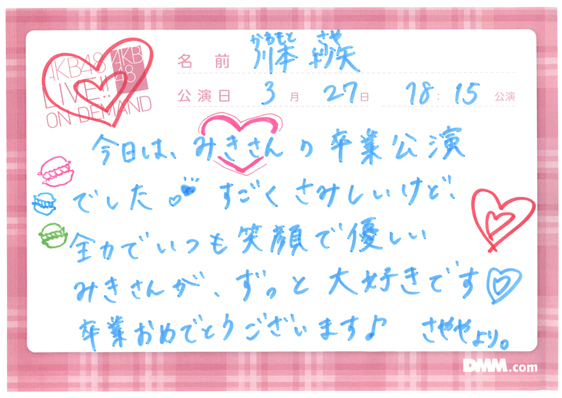 AKB48
LIVE!!
ON DEMAND
AKB
48
かわもと さや
名前 川本 紗矢
公演日 3月27日 18:15 公演
今日は、みきさんの卒業公演
でした すごくさみしいけど、
全力でいつも笑顔で優しい
みきさんが、ずっと大好きです
卒業おめでとうございます♪ さややより。
DMM.com